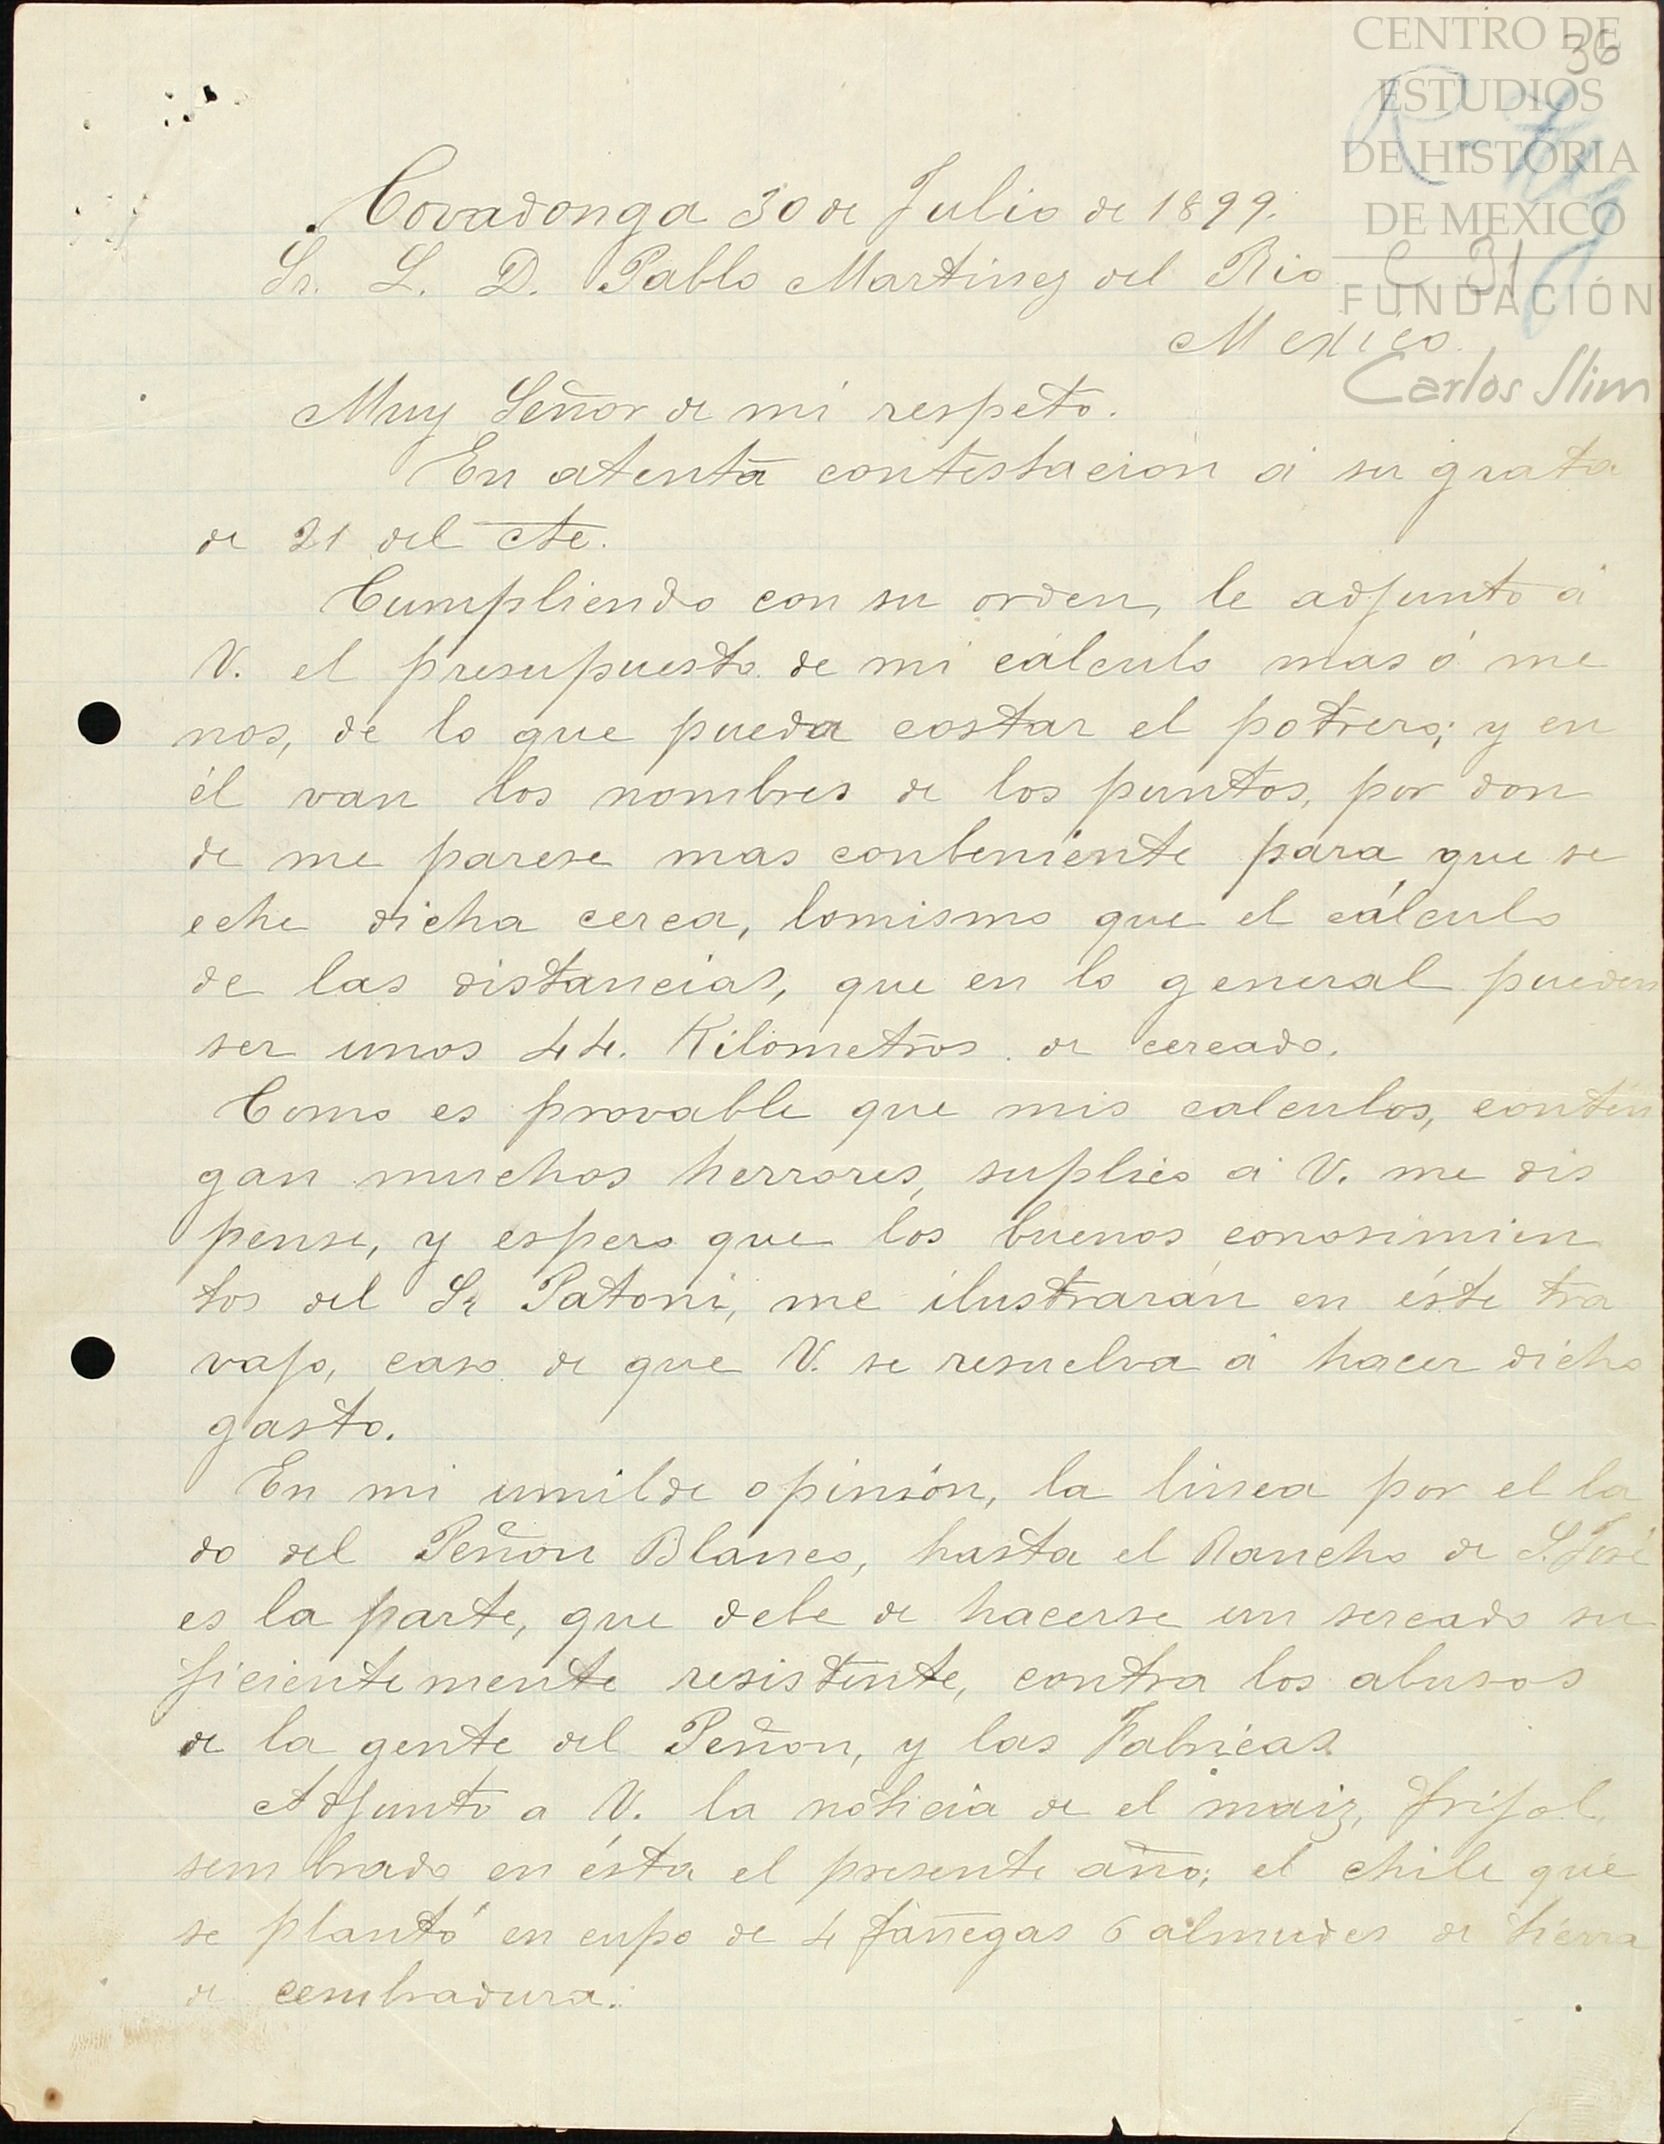 CENTRO DE
ESTUDIOS
DE HISTORIA
DE MEXICO
FUNDACIÓN
Carlos Slim
36
C 31
Covadonga 30 de Julio de 1899.
Sr. L. D. Pablo Martinez del Rio
Mexico.
Muy Señor de mi respeto.
En atenta contestacion á su grata
de 21 del cte.
Cumpliendo con su orden, le adjunto á
V. el presupuesto de mi cálculo mas ó me
nos, de lo que pueda costar el potrero; y en
él van los nombres de los puntos, por don
de me parese mas conbeniente para que se
eche dicha cerca, lomismo que el cálculo
de las distancias, que en lo general pueden
ser unos 44. Kilometros de cercado.
Como es provable que mis calculos, conten
gan muchos herrores, suplico á V. me dis
pense, y espero que los buenos conosimien
tos del Sr Patoni, me ilustrarán en éste tra
vajo, caso de que V. se resuelva á hacer dicho
gasto.
En mi umilde opinión, la linea por el la
do del Peñon Blanco, hasta el Rancho de S. José
es la parte, que debe de hacerse un sercado su
ficientemente resistente, contra los abusos
de la gente del Peñon, y las Fabricas.
Adjunto a V. la noticia de el maiz, frijol,
sembrado en ésta el presente año; el chile que
se plantó en cupo de 4 fanegas 6 almudes de tierra
de cembradura.